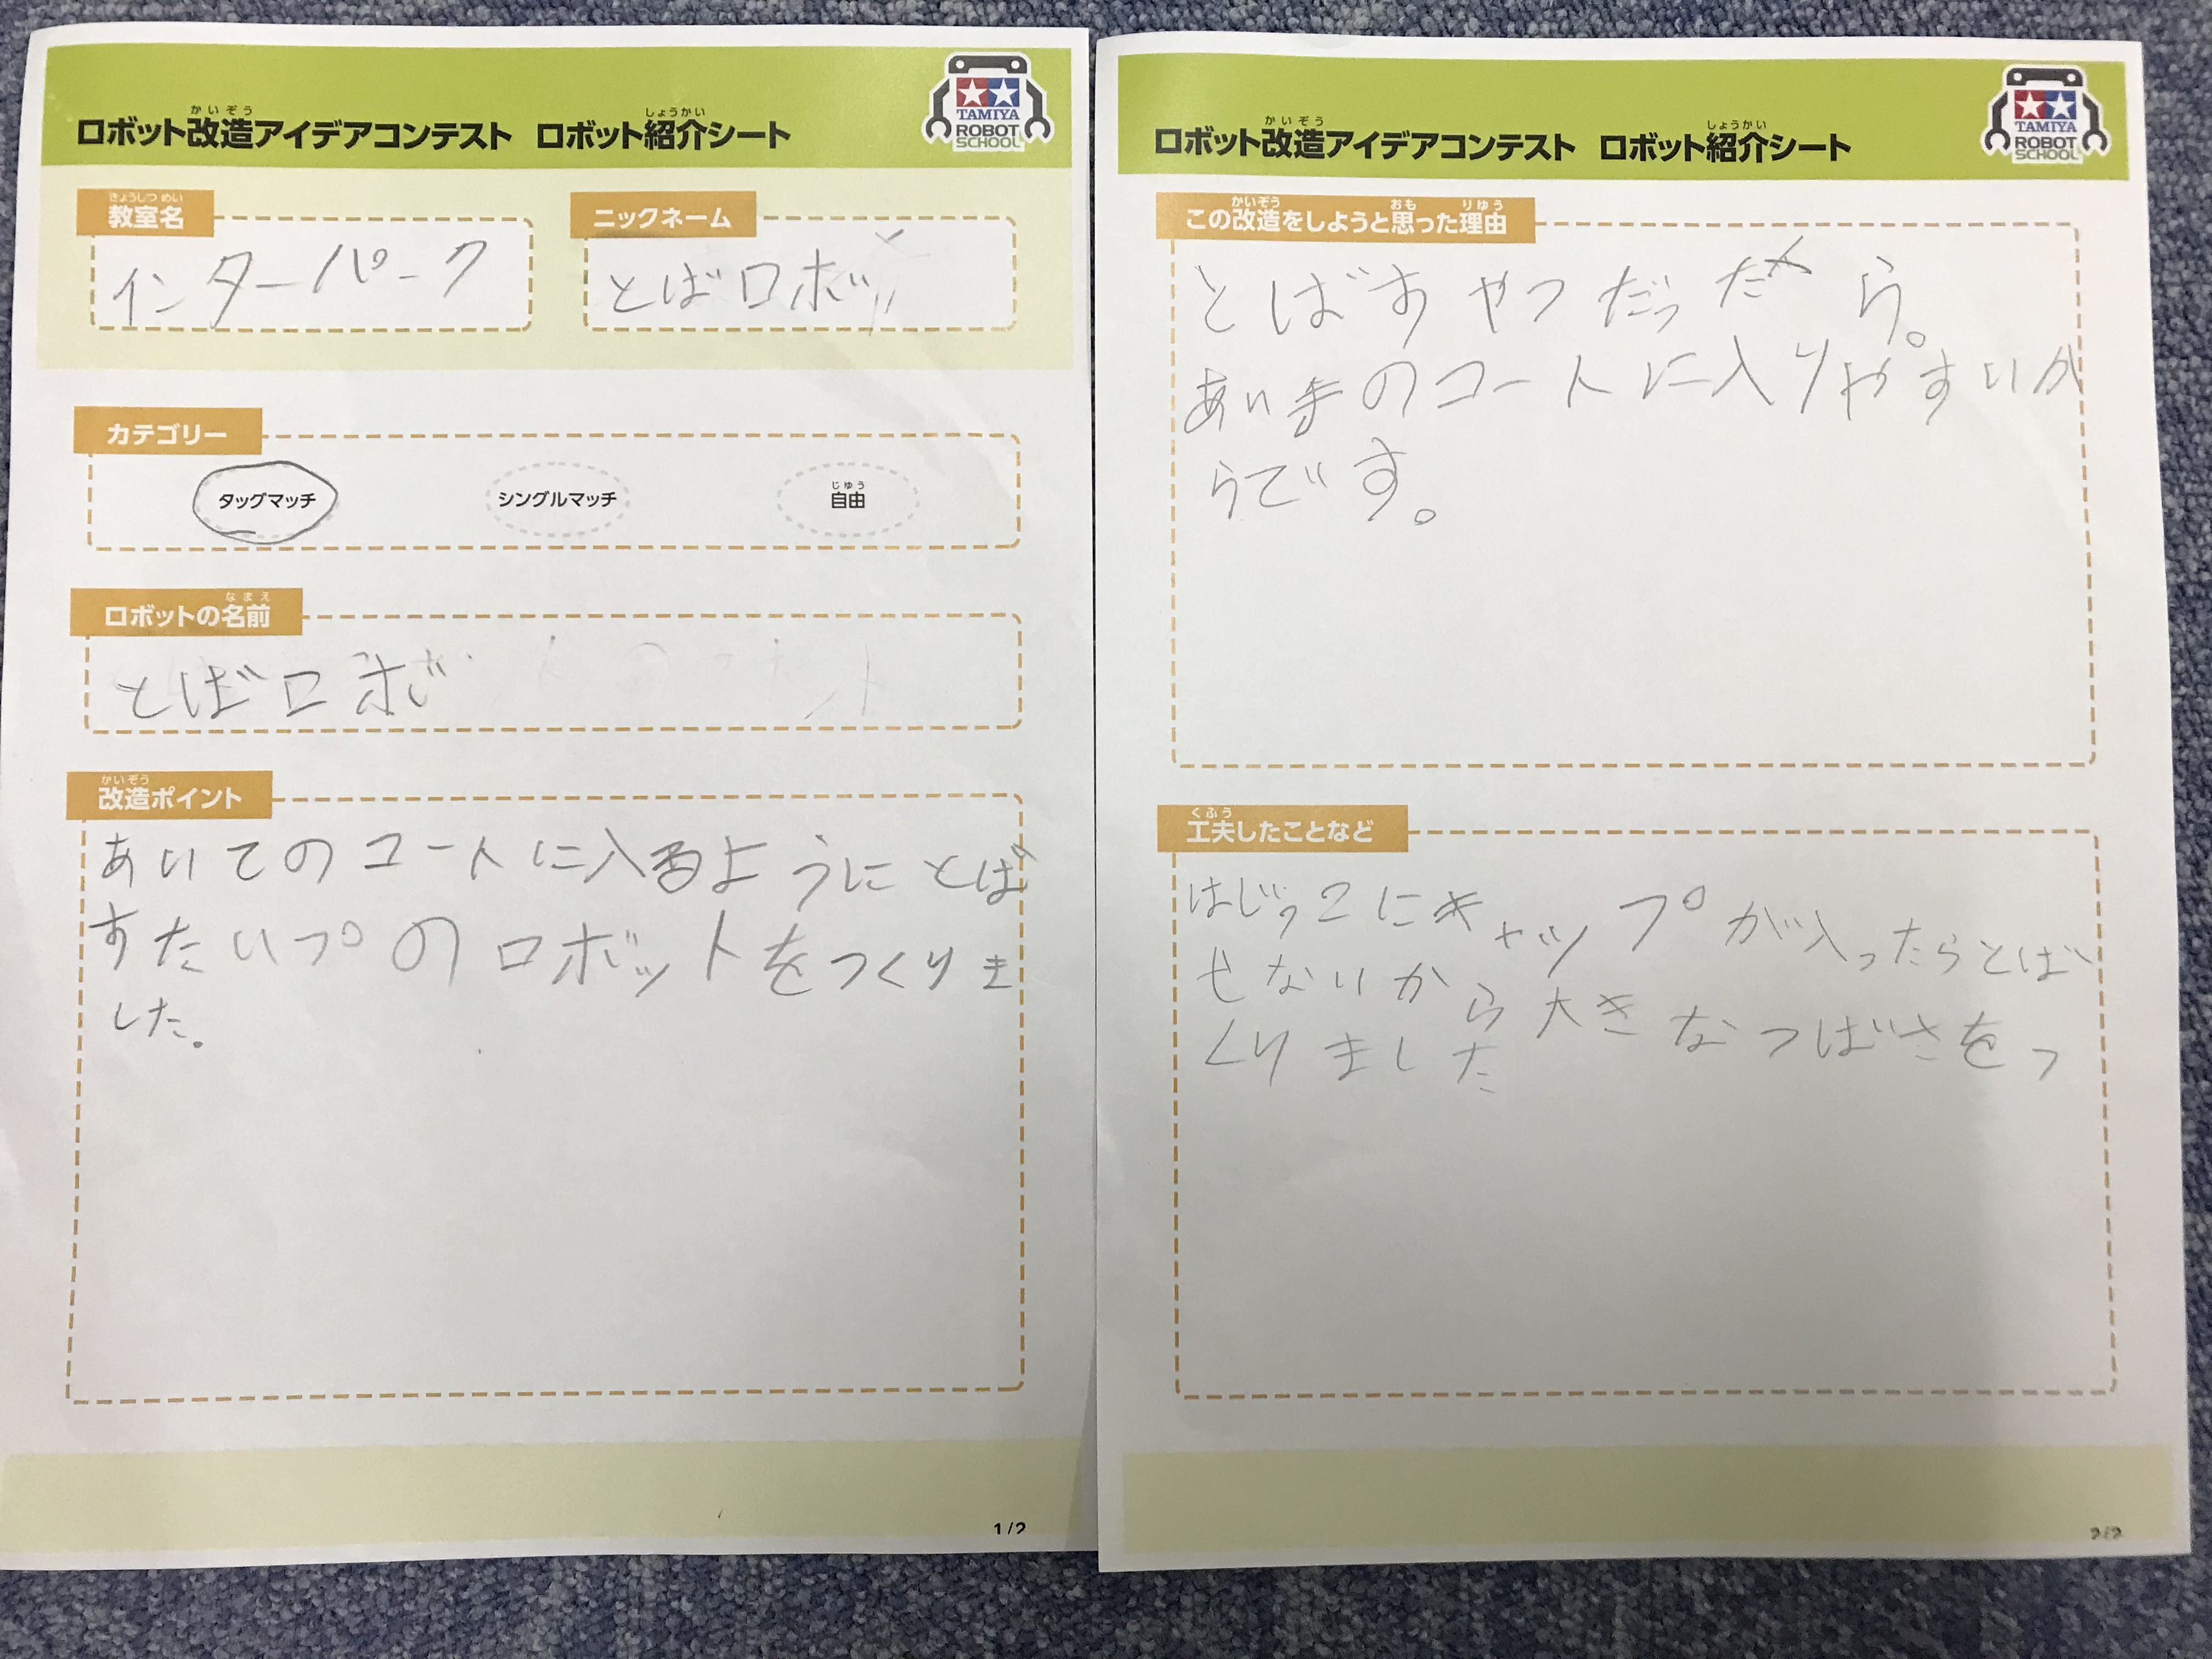 ロボット改造アイデアコンテスト ロボット紹介シート
かいぞう しょうかい
TAMIYA
ROBOT
SCHOOL
きょうしつ めい
教室名
インターパーク
ニックネーム
とばロボ
カテゴリー
タッグマッチ
シングルマッチ
じゆう
自由
なまえ
ロボットの名前
とばロボ
かいぞう
改造ポイント
あいてのコートに入るようにとば
すたいプのロボットをつくりま
した。
1/2
ロボット改造アイデアコンテスト ロボット紹介シート
かいぞう しょうかい
TAMIYA
ROBOT
SCHOOL
かいぞう おも りゆう
この改造をしようと思った理由
とばすやつだっだから。
あい手のコートに入りやすいか
らです。
くふう
工夫したことなど
はじっこにキャップが入ったらとば
せないから大きなつばさをつ
くりました
2/2